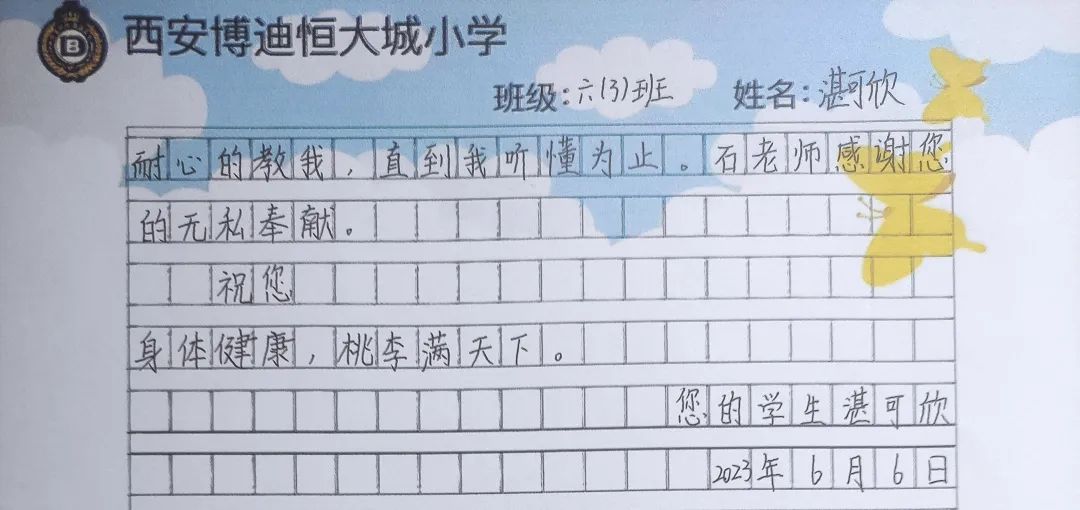 B
西安博迪恒大城小学
班级:六(3)班 姓名:湛可欣
耐心的教我,直到我听懂为止。石老师感谢您
的无私奉献。
祝您
身体健康,桃李满天下。
您的学生湛可欣
2023年6月6日